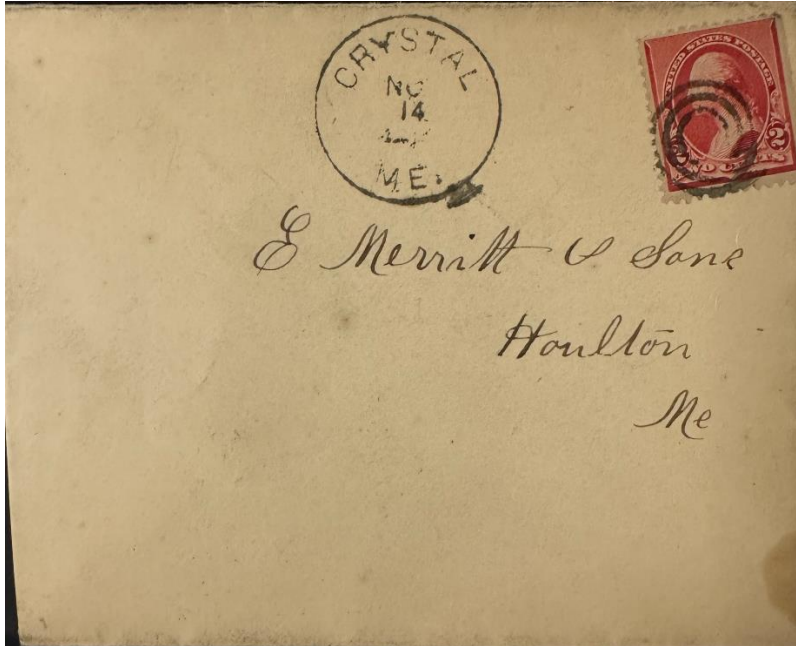 CRYSTAL
14
ME.
UNITED STATES POSTAGE
2
CENTS
E Merritt & Sons
Houlton
Me